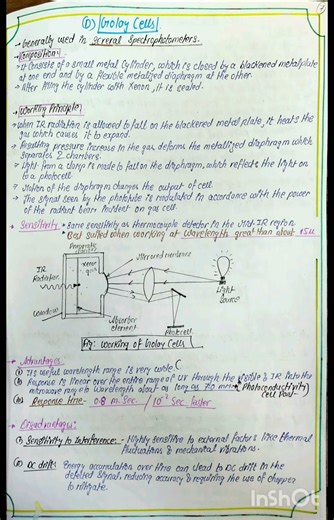 (D) Golay Cells
→ Generally used in several Spectrophotometers.
→ Composition :-
→ It consists of a small metal cylinder, which is closed by a blackened metal plate
at one end and by a flexible metalized diaphragm at the other.
→ After filling the cylinder with Xenon, it is sealed.
→ Working Principle :-
→ When IR radiation is allowed to fall on the blackened metal plate, it heats the
gas which causes it to expand.
→ Resulting pressure increase in the gas deforms the metallized diaphragm which
separates 2 chambers.
→ Light from a lamp is made to fall on the diaphragm, which reflects the light on
to a photocell
→ Motion of the diaphragm changes the output of cell.
→ The signal seen by the phototube is modulated in accordance with the power
of the radiant beam incident on gas cell.
→ Sensitivity → Same sensitivity as thermocouple detector in the mid-IR region.
* Best suited when working at wavelength great than about 15u
Pneumatic
Xenon
gas
Mirrored membrane
IR
Radiation
Window
Absorber
element
Photocell
Light
Source
Fig: Working of Golay Cells
→ Advantages :-
(a) It's useful wavelength range is very wide.
(b) Response is linear over the entire range of UV through the visible & IR into the
microwave range to wavelength about as long as 7.0 mm.
(Photoconductivity)
(cell Fast
Response time → 0.8 m. Sec / 10⁻² Sec faster
→ Disadvantages :-
(1) Sensitivity to Interference :- Highly sensitive to external factors like thermal
fluctuations & mechanical vibrations.
(2) DC drift :- Energy accumulation over time can lead to DC drift in the
detected signal, reducing accuracy & requiring the use of chopper
to mitigate.
InShOt